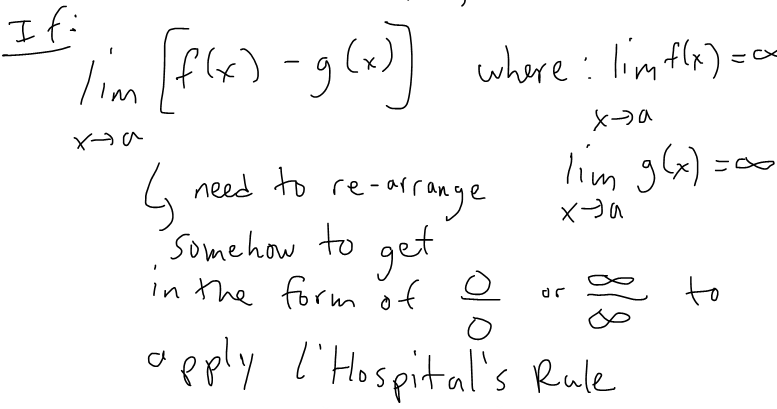 If:
lim [f(x) - g(x)] where: lim f(x) = ∞
x→a x→a
↳ need to re-arrange lim g(x) = ∞
x→a
somehow to get
in the form of 0/0 or ∞/∞ to
apply l'Hospital's Rule